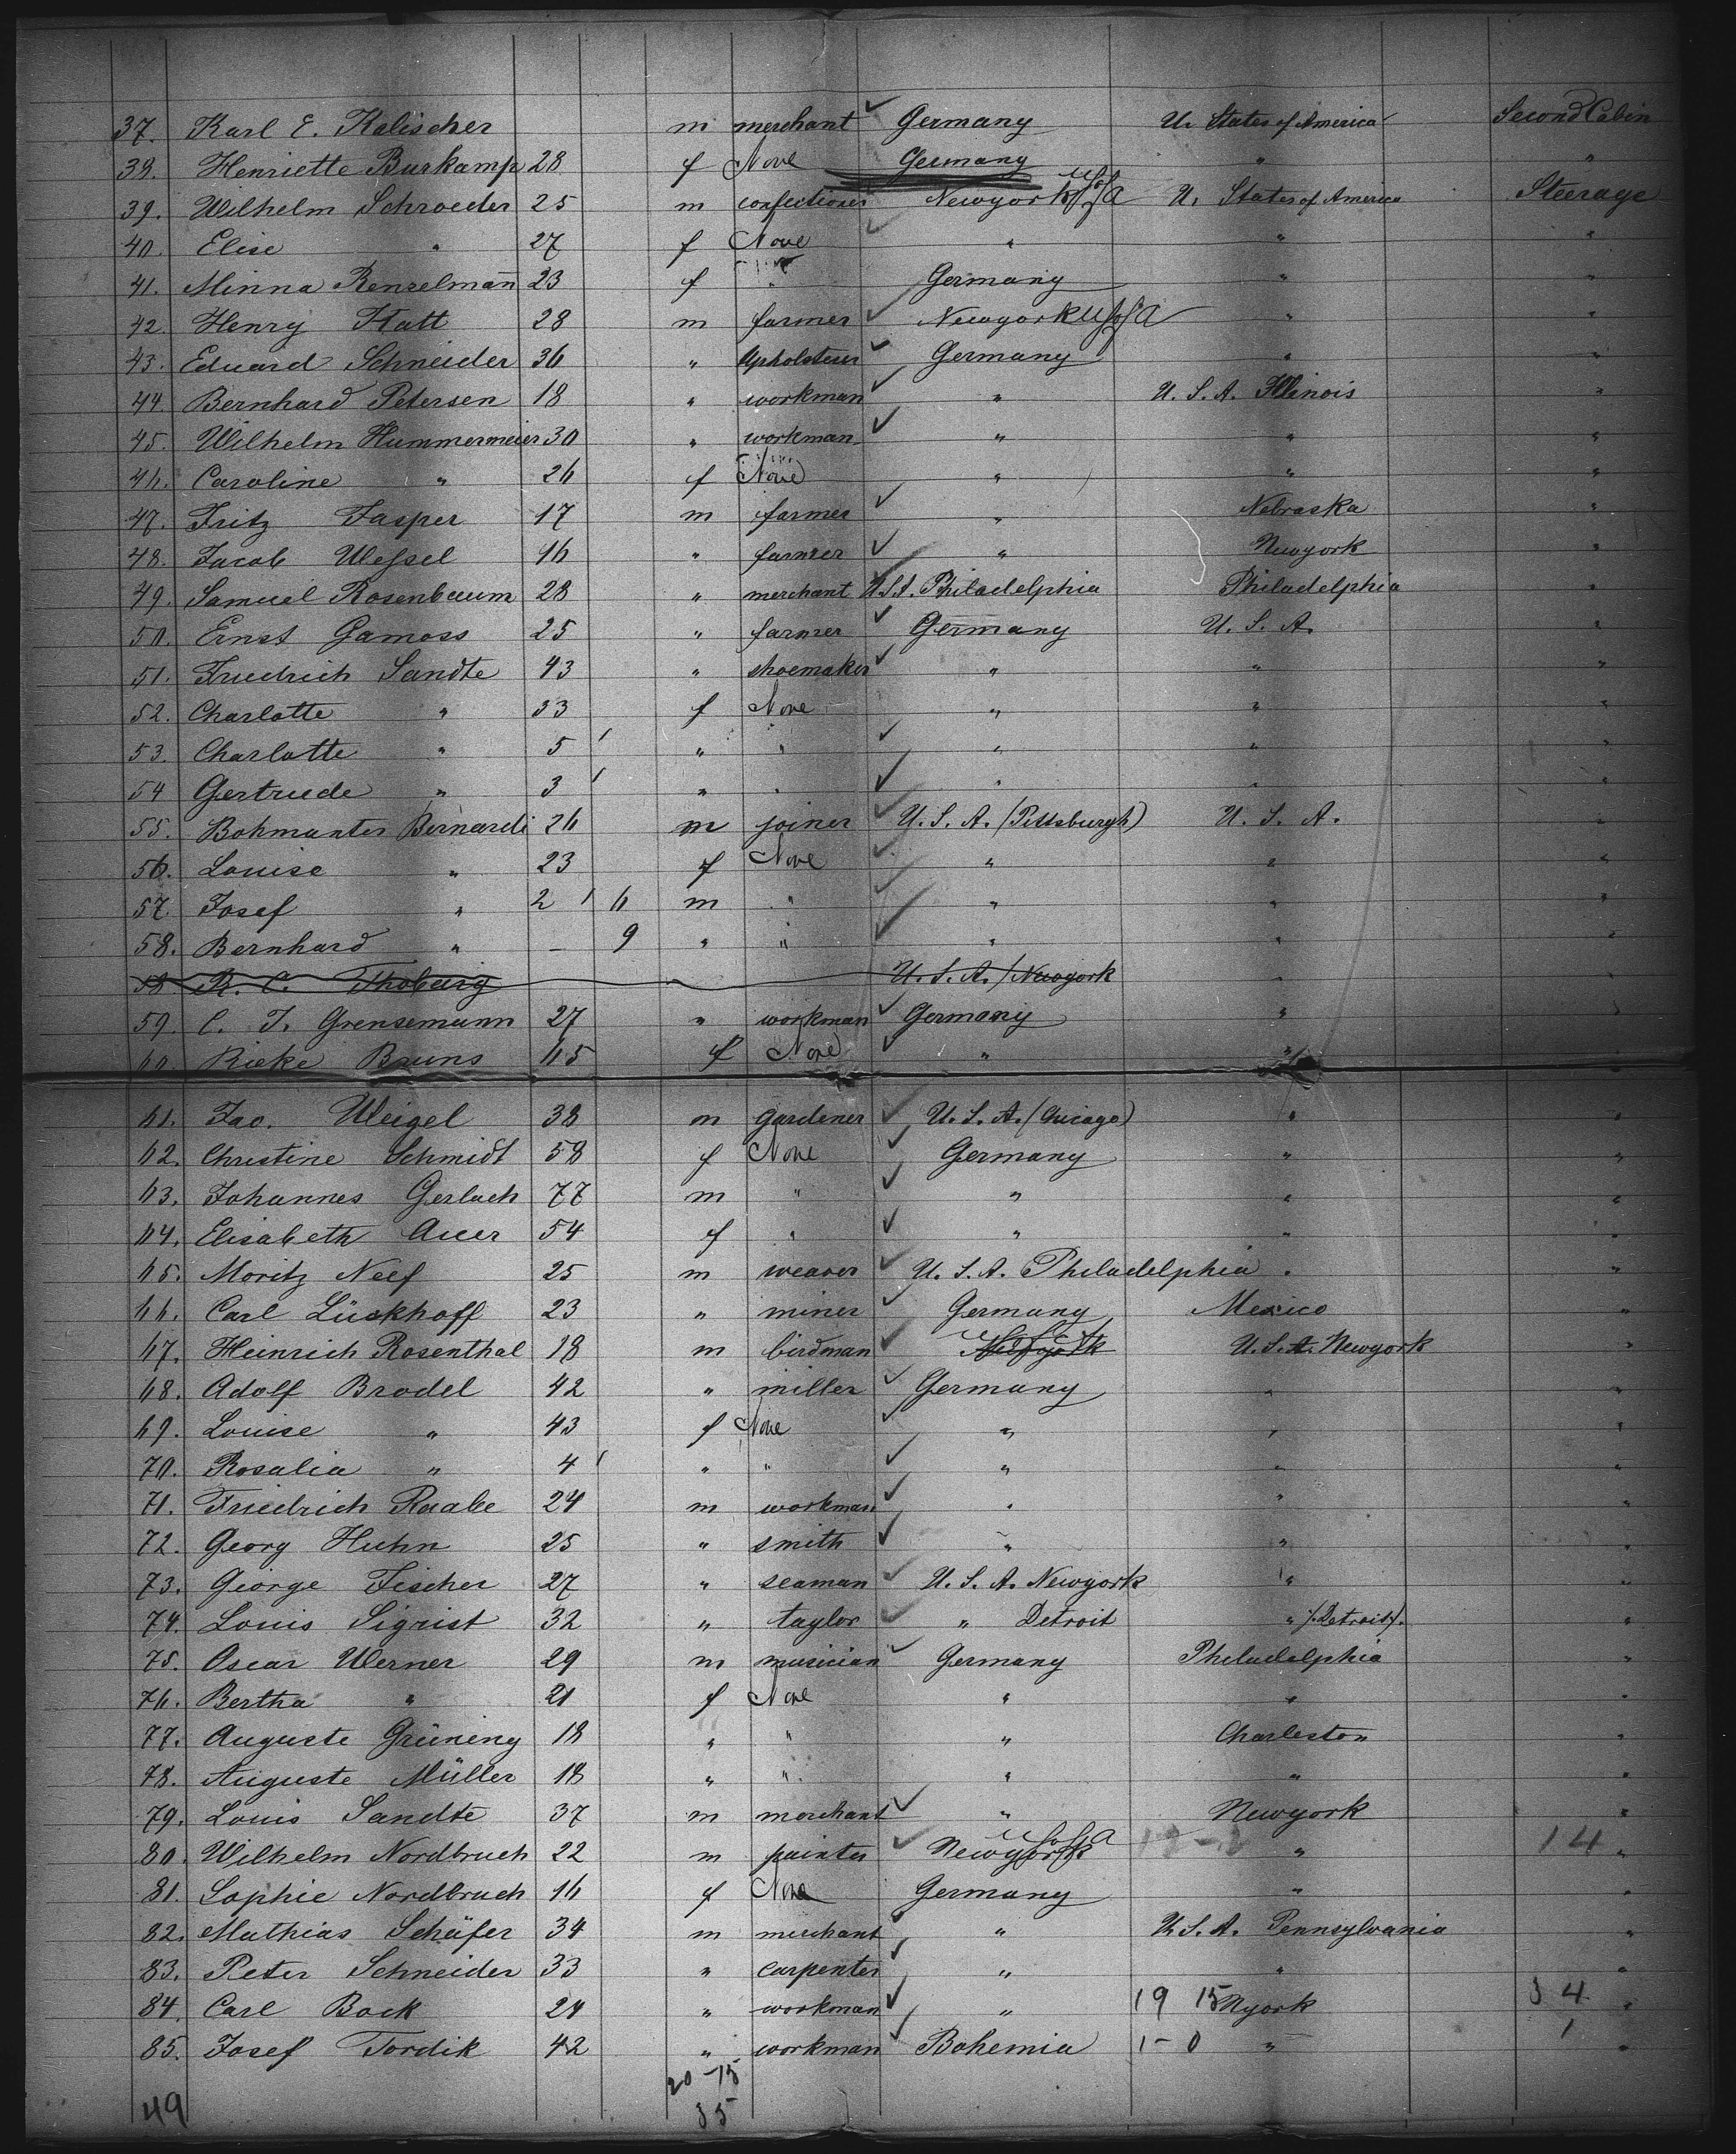 37. Karl E. Kalischer m merchant ✓ Germany U. States of America Second Cabin
38. Henriette Burkamp 28 f None Germany " "
39. Wilhelm Schroeder 25 m confectioner Newyork U.S.A. U. States of America Steerage
40. Elise " 27 f None " " "
41. Minna Renzelmann̄ 23 f " Germany " "
42. Henry Flatt 28 m farmer ✓ Newyork U.S.A. " "
43. Eduard Schneider 36 " Upholsterer ✓ Germany " "
44. Bernhard Petersen 18 " workman ✓ " U. S. A. Illinois "
45. Wilhelm Hummermeier 30 " workman ✓ " " "
46. Caroline " 26 f None " " "
47. Fritz Jasper 17 m farmer ✓ " Nebraska "
48. Jacob Wessel 16 " farmer ✓ " Newyork "
49. Samuel Rosenbaum 28 " merchant U.S.A. Philadelphia Philadelphia "
50. Ernst Gamoss 25 " farmer ✓ Germany U. S. A. "
51. Friedrich Sandte 43 " shoemaker ✓ " " "
52. Charlotte " 33 f None " " "
53. Charlotte " 5 / " " ✓ " " "
54 Gertrude " 3 / " " ✓ " " "
55. Bohmunter Bernardi 26 m joiner ✓ U. S. A. (Pittsburgh) U. S. A. "
56. Louise " 23 f None ✓ " " "
57. Josef " 2 / 6 m " ✓ " " "
58. Bernhard " – 9 " " ✓ " " "
58 R. C. Thoburg U. S. A. / Newyork "
59. C. J. Grensemann 27 " workman ✓ Germany " "
60. Rieke Bruns 65 f None ✓ " "
61. Jac. Weigel 38 m gardener ✓ U. S. A. (Chicago) " "
62. Christine Schmidt 58 f None ✓ Germany " "
63. Johannes Gerlach 77 m " ✓ " " "
64. Elisabeth Auer 54 f " ✓ " " "
65. Moritz Neef 25 m weaver ✓ U. S. A. Philadelphia " "
66. Carl Lückhoff 23 " miner ✓ Germany Mexico "
67. Heinrich Rosenthal 18 m birdman ✓ Newyork U. S. A. Newyork "
68. Adolf Brodel 42 " miller ✓ Germany " "
69. Louise " 43 f None ✓ " " "
70. Rosalia " 4 / " " ✓ " " "
71. Friedrich Raabe 24 m workman ✓ " " "
72. Georg Huhn 25 " smith ✓ " " "
73. George Fischer 27 " seaman ✓ U. S. A. Newyork " "
74. Louis Sigrist 32 " taylor ✓ " Detroit " /:Detroit/. "
75. Oscar Werner 29 m musician ✓ Germany Philadelphia "
76. Bertha " 21 f None " " "
77. Auguste Grüning 18 " " " Charleston "
78. Auguste Müller 18 " " " " "
79. Louis Sandte 37 m merchant ✓ " Newyork "
80. Wilhelm Nordbruch 22 m painter ✓ Newyork U.S.A. " 14 "
81. Sophie Nordbruch 16 f None Germany " "
82. Mathias Schäfer 34 m merchant ✓ " U. S. A. Pennsylvania "
83. Peter Schneider 33 " carpenter ✓ " " "
84. Carl Bock 24 " workman ✓ " 19 15 Nyork 34 "
85. Josef Tordik 42 " workman ✓ Bohemia 1-0 " 1 "
20-15
49 35